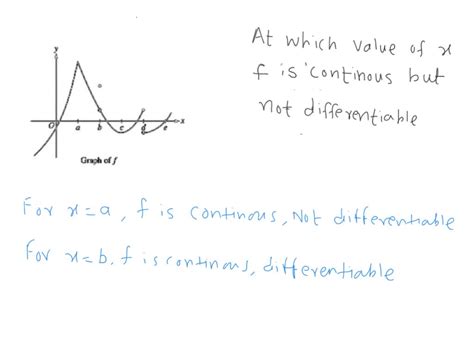 At which value of x
f is continous but
not differentiable
y
O a b c d e x
Graph of f
For x=a, f is continous, Not differentiable
For x=b, f is continous, differentiable